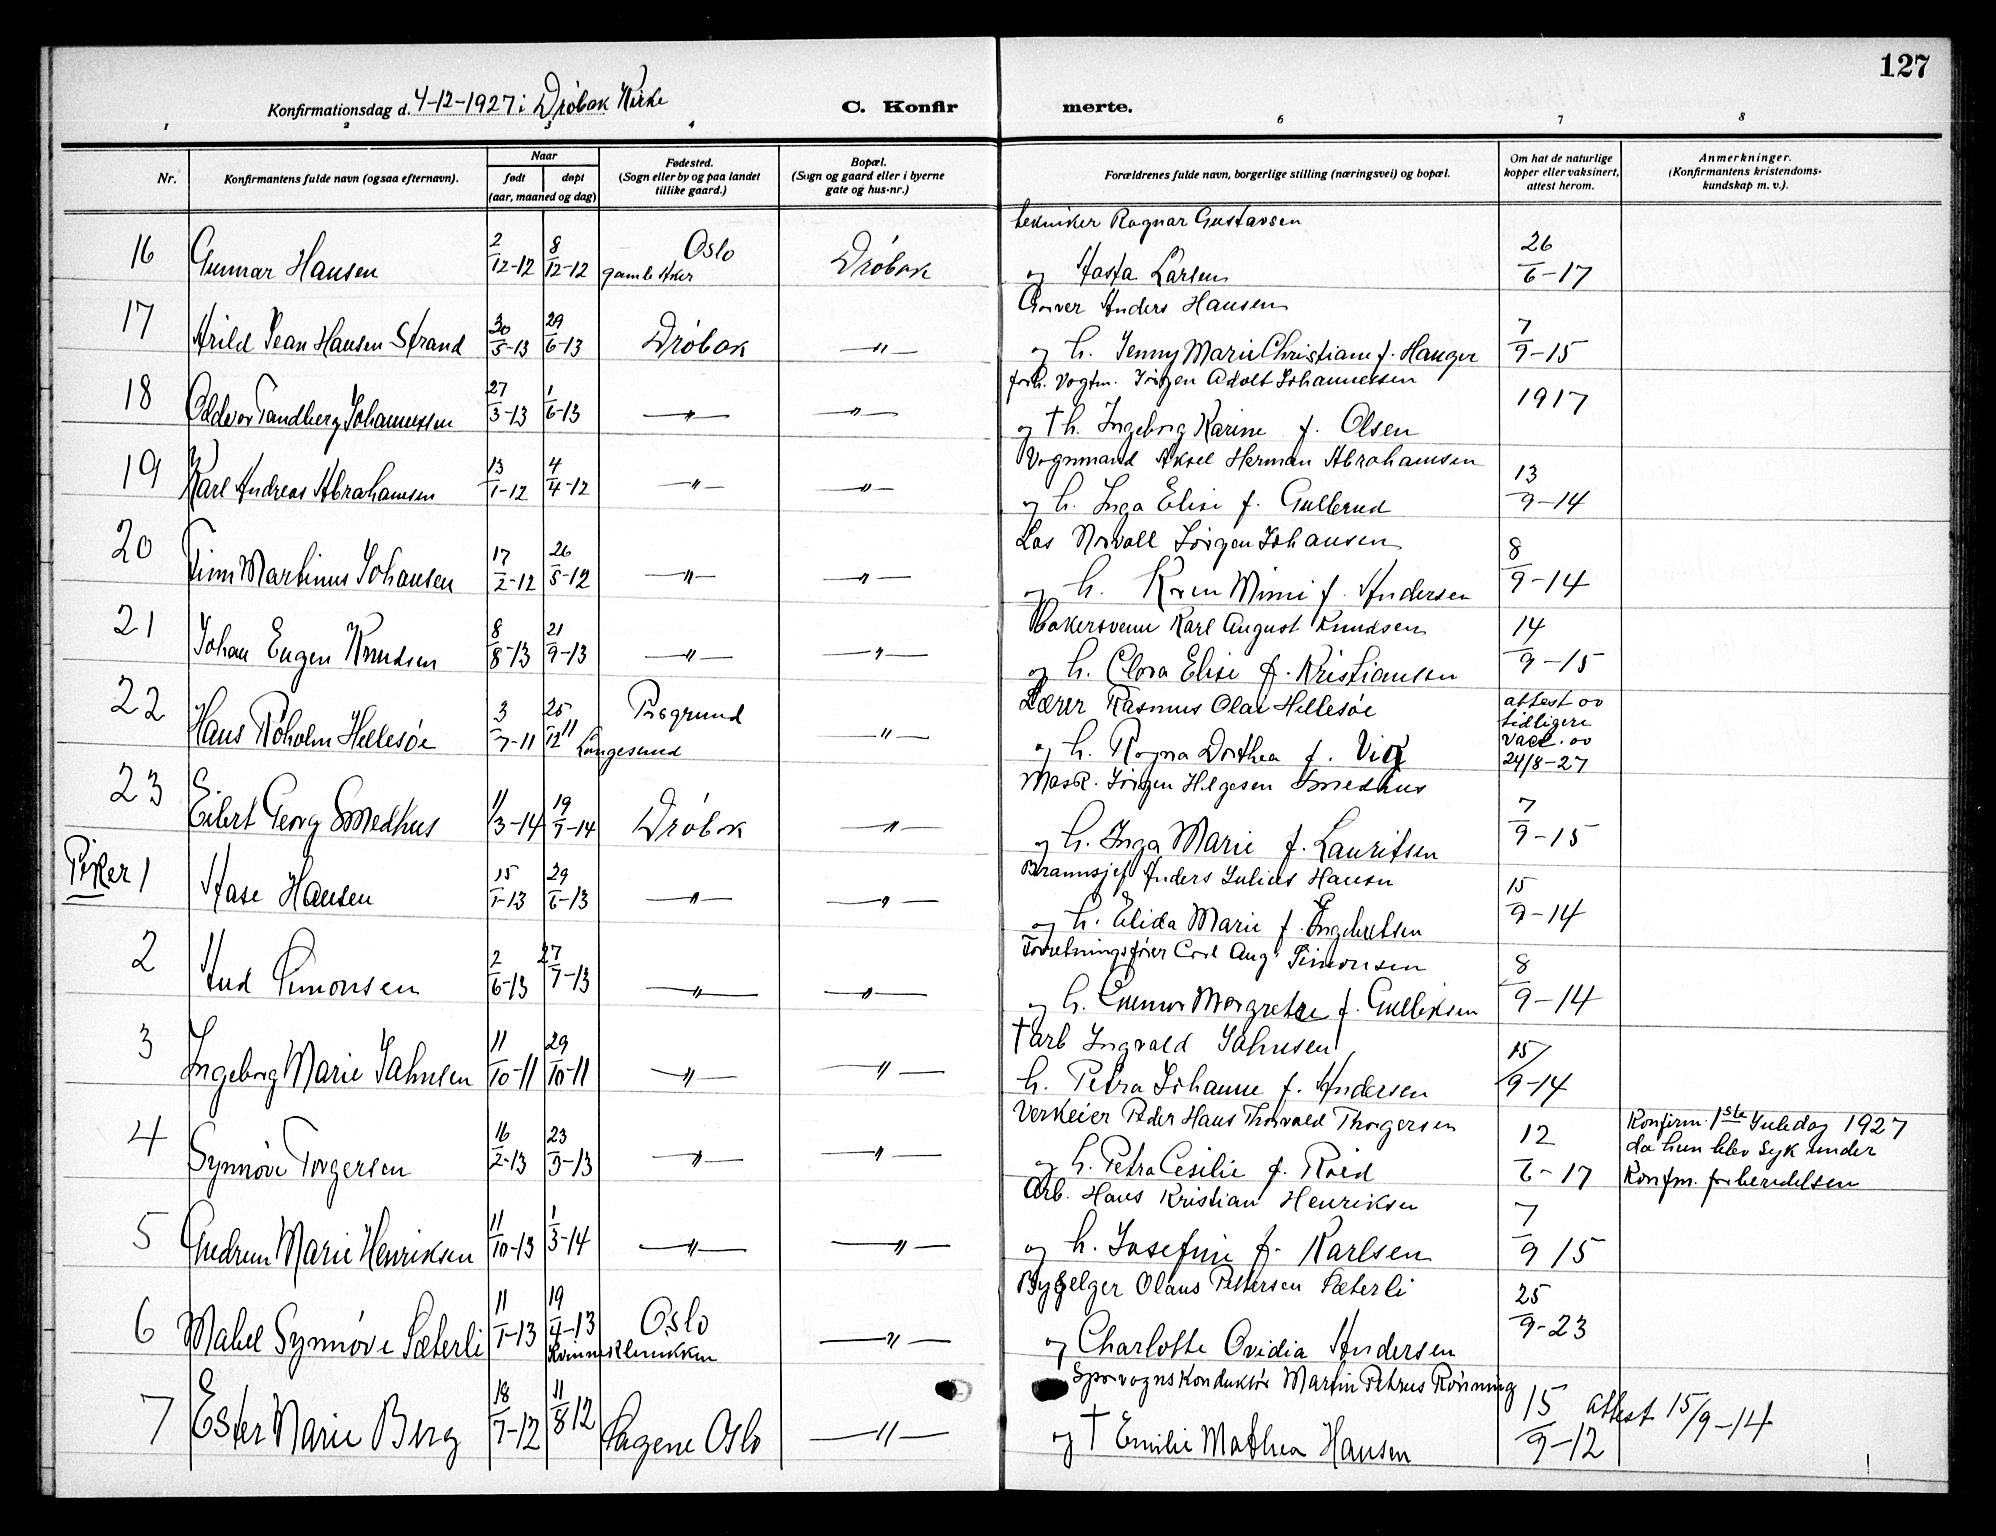 127
Konfirmationsdag d. 4-12-1927 i Drøbak Kirke
C. Konfirmerte.
1 2 3 4 6 7 8
Nr.
Konfirmantens fulde navn (ogsaa efternavn).
Naar
født døpt
(aar, maaned og dag)
Fødested.
(Sogn eller by og paa landet
tillike gaard.)
Bopæl.
(Sogn og gaard eller i byerne
gate og hus-nr.)
Forældrenes fulde navn, borgerlige stilling (næringsvei) og bopæl.
Om hat de naturlige
kopper eller vaksinert,
attest herom.
Anmerkninger.
(Konfirmantens kristendoms-
kundskap m. v.).
tekniker Ragnar Gustavsen
16 Gunnar Hansen 2/12-12 8/12-12 Oslo gamle Aker Drøbak og Aasta Larsen 26/6-17
Graver Anders Hansen
17 Arild Jean Hansen-Strand 30/5-13 29/6-13 Drøbak -"- og h. Jenny Marie Christiane f. Hauger 7/9-15
forh. Vogtm. Jörgen Adolt Johannessen
18 Oddvar Tandberg Johannessen 27/3-13 1/6-13 -"- -"- og † h. Ingeborg Karine f. Olsen 1917
Vognmand Aksel Herman Abrahamsen
19 Karl Andreas Abrahamsen 13/1-12 4/4-12 -"- -"- og h. Inga Elise f. Gullerud 13/9-14
Los Norvall Jörgen Johansen
20 Finn Martinus Johansen 17/2-12 26/5-12 -"- -"- og h. Karen Mimi f. Andersen 8/9-14
Bakersvenn Karl August Knudsen
21 Johan Eugen Knudsen 8/8-13 21/9-13 -"- -"- og h. Clara Elise f. Kristiansen 14/9-15
Lærer Rasmus Olai Hellesøe
22 Hans Röholm Hellesøe 3/7-11 25/12 11 Porsgrund Langesund -"- og h. Ragna Dorthea f. Vig attest ov
tidligere
vacc. ov
24/8-27
Mask. Jörgen Helgesen Smedhus
23 Eilert Georg Smedhus 11/3-14 19/7-14 Drøbak -"- og h. Inga Marie f. Lauritsen 7/9-15
Brannsjef Anders Julius Hansen
Piker 1 Aase Hansen 15/1-13 29/6-13 -"- -"- og h. Elida Marie f. Ingebretsen 15/9-14
Forretningsfører Carl Aug. Simonsen
2 Aud Simonsen 2/6-13 27/7-13 -"- -"- og h. Gunvor Margrethe f. Gulliksen 8/9-14
† arb Ingvald Jahnsen
3 Ingeborg Marie Jahnsen 11/10-11 29/10-11 -"- -"- h. Petra Johanne f. Andersen 15/9-14
Verkeier Peder Hans Thorvald Thorgersen
4 Synnöve Torgersen 16/2-13 23/3-13 -"- -"- og h. Petra Cesilie f. Roed 12/6-17 Konfirm. 1ste Juledag 1927
da hun blev syk under
Konfm. forberedelsen
Arb. Hans Kristian Henriksen
5 Gudrun Marie Henriksen 11/10-13 1/3-14 -"- -"- og h. Josefine f. Karlsen 7/9 15
Bygselger Olaus Pettersen Sæterli
6 Mabel Synnöve Sæterli 11/1-13 19/4-13 Oslo Kvinneklinikken -"- og Charlotte Ovidia Andersen 25/9-23
Sporvognskonduktör Martin Petrus Rönning
7 Ester Marie Berg 18/7-12 11/8 12 Sagene Oslo -"- og † Emilie Mathea Hansen 15/9-12 attest 15/9-14